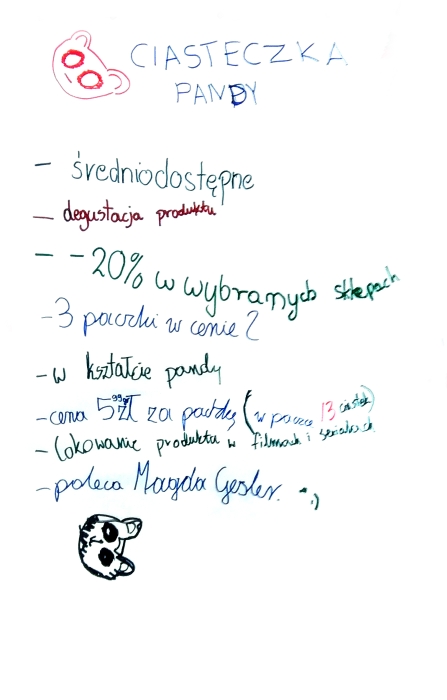 CIASTECZKA
PANDY
- średniodostępne
- degustacja produktu
- -20% w wybranych sklepach
- 3 paczki w cenie 2
- w kształcie pandy
- cena 5 99gr zł za paczkę (w paczce 13 ciastek)
- lokowanie produktu w filmach i serialach
- poleca Magda Gesler. :)